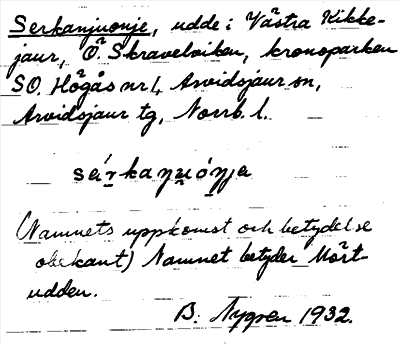 Serkanjuonje, udde i Västra Kikke-
jaur, Ö. Skraveloiken, kronoparken
SO. Högås nr 1, Arvidsjaur sn,
Arvidsjaur tg, Norrb. l.
sér̯kaŋu̯óŋja
(Namnets uppkomst och betydelse
obekant) Namnet betyder Mört-
udden.
B. Nygren 1932.